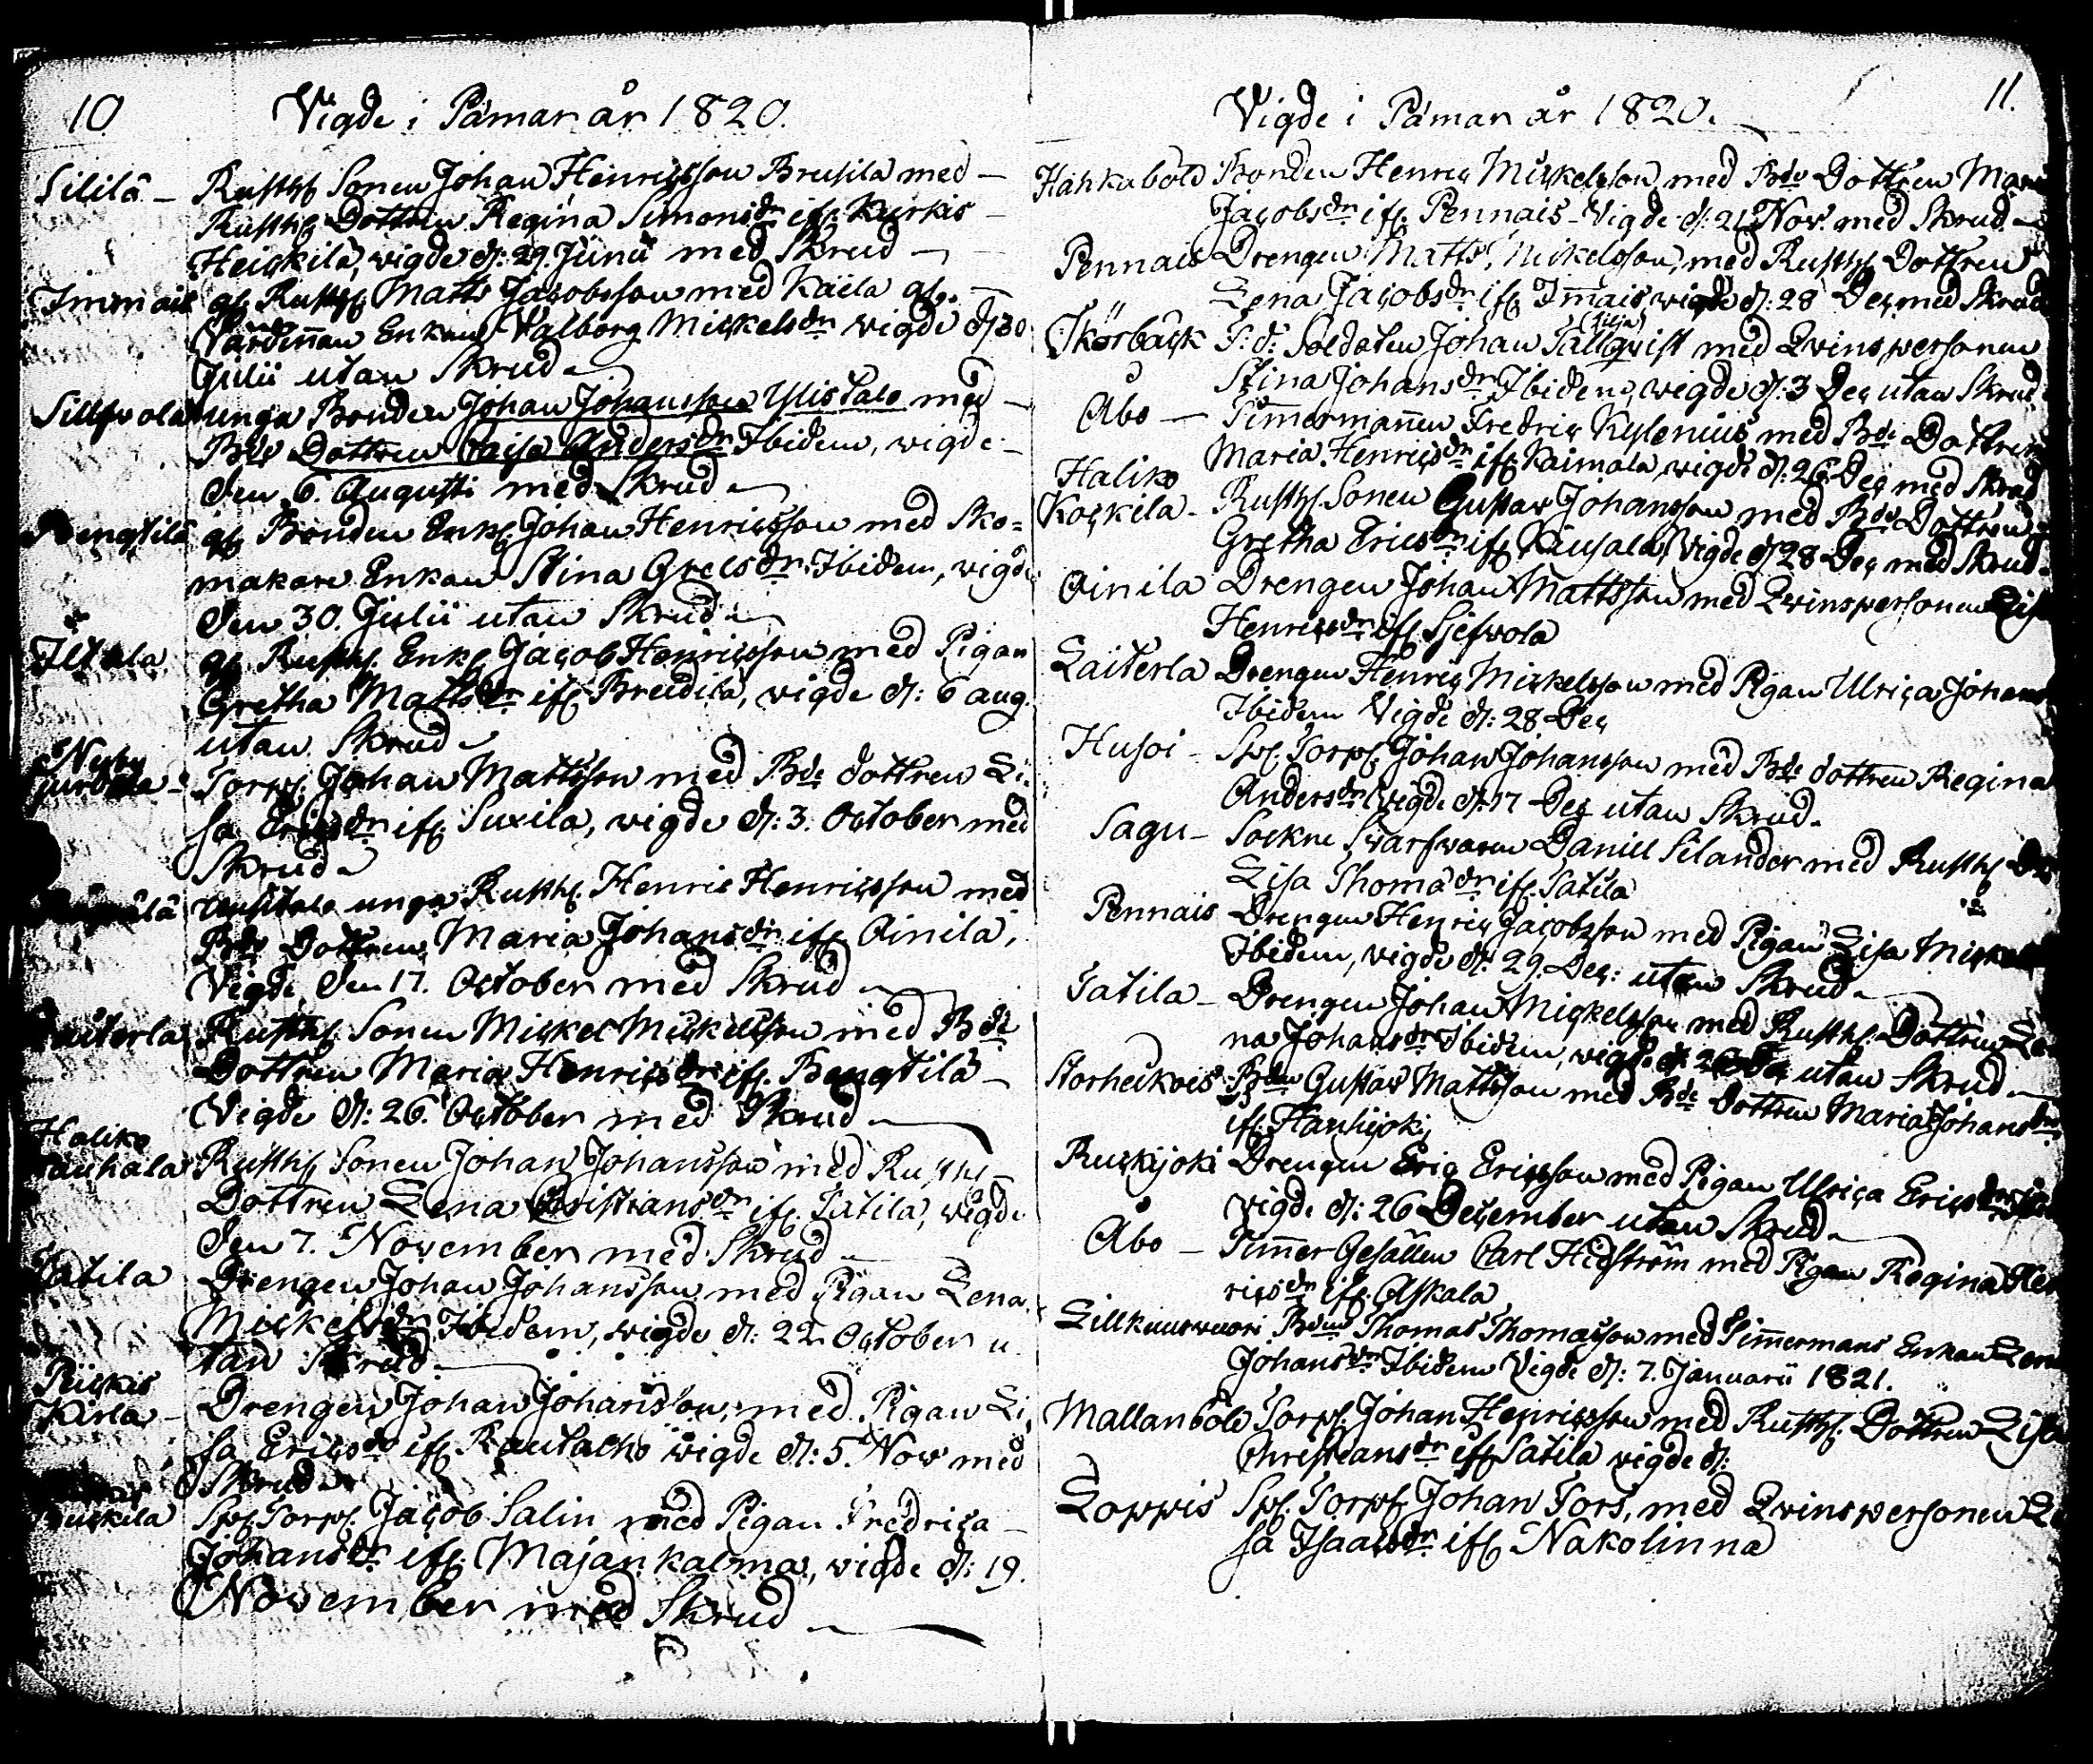 10.
Vigde i Pämar år 1820.
Sililä – Rusth: Sonen Johan Henricsson Brusila med –
Rusth: Dottren Regina Simonsdr ifr. Kurkis –
Heickilä, wigde d: 29. Junii med Skrud –
Immais gl. Rusth: Matts Jacobsson med Kaila gl. –
Värdinnan Enkan Valborg Mickelsdr wigde d 30
Julii utan Skrud –
Sillfwola unga Bonden Johan Johansson Ylistalo med –
Bde Dottren Caisa Andersdr Ibidem, wigde –
den 6. Augusti med Skrud –
Bengtilä gl. Bonden Enkl: Johan Henricsson med Sko=
makare Enkan Stina Grelsdr Ibidem, wigde
den 30. Julii utan Skrud –
Iltola gl. Rusth: Enkl: Jacob Henricsson med Pigan
Gretha Mattsdr ifr. Breidilä, vigde d: 6 aug.
utan Skrud –
Nyby
Torp: Johan Mattsson med Bde dottren Li=
sa Ericsdr ifr. Suxila, vigde d: 3. October med
Skrud –
unga Rusth: Henric Henricsson med
Bde Dottren Maria Johansdr ifr Oinila,
Vigde den 17. October med Skrud –
Laiterla Rusth: Sonen Mickel Mickelsson med Bde
Dottren Maria Henricsdr ifr. Bengtilä –
Vigde d: 26. October med Skrud –
Haliko
Rusth: Sonen Johan Johansson med Rusth: –
Dottren Lena Christiansdr ifr. Tatila, vigde
den 7. November med Skrud –
Tatila Drengen Johan Johansson med Pigan Lena
Mickelsdr Ibidem, vigde d: 22 October u
tan Skrud –
Piickis
Kirla – Drengen Johan Johansson, med Pigan Li
sa Ericsdr ifr. Rautalho wigde d: 5. Nov med
Skrud –
Spl: Torp: Jacob Salin med Pigan Fredrica –
Johansdr ifr. Majankalma, vigde d: 19.
November med Skrud –
11.
Vigde i Pämar år 1820. –
Hahkaböle Bonden Henric Mickelsson med Bde Dottren
Jacobsdr ifr. Pennais – Vigde d: 21 Nov. med Skrud –
Pennais Drengen Matts Mickelsson, med Rusth: Dottren
Lena Jacobsdr ifr Immais vigde d: 28 Dec med Skrud
Skörbäck F: d: Soldaten Johan Tallqvist (Lilja) med Qvinspersonen
Stina Johansdr Ibidem, wigde d: 3 Dec utan Skrud
Åbo – Timmermannen Fredric Kylenius med Bde Dottren
Maria Henricsdr ifr Kaimala vigde d: 26 Dec med Skrud
Haliko
Kockila – Rusth: Sonen Gustav Johansson med Bde Dottren
Gretha Ericsdr ifr Vigde d 28 Dec med Skrud –
Oinila Drengen Johan Mattsson med Qvinspersonen
Henricsdr ifr Sjefwola
Laiterla Drengen Henric Mickelsson med Pigan Ulrica
Ibidem Vigde d: 28 Dec
Husoi – Spl: Torp: Johan Johansson med Bde dottren Regina
Andersdr Vigde d: 17 Dec utan Skrud –
Sagu – Sockne Svarfvaren Daniel Selander med Rusth:
Lisa Thomadr ifr. Tatila
Pennais Drengen Henric Jacobsson med Pigan Lisa
Ibidem, vigde d: 29. Dec: utan Skrud –
Tatila – Drengen Johan Mickelsson med Rusth: Dottren
na Johansdr Ibidem, vigde d: utan Skrud –
Storheikois Bden Gustav Mattsson med Bde dottren Maria Johansdr
ifr. Hanhijoki
Ruskijoki Drengen Eric Ericsson med Pigan Ulrica Ericsdr
vigde d: 26 December utan Skrud –
Åbo – Timmer Gesällen Carl Hedström med Pigan Regina
ricsdr ifr. Askala
Lillkuusvuori Bden Thomas Thomasson med Timmermans Enkan
Johansdr Ibidem Vigde d: 7. Januarii 1821.
Mallanböle Torp: Johan Henricsson med Rusth: Dottren
Christiansdr ifr Tatila vigde d:
Loppis Spl: Torp: Johan Tors, med Qvinspersonen
sa Isaacsdr ifr Nakolinna